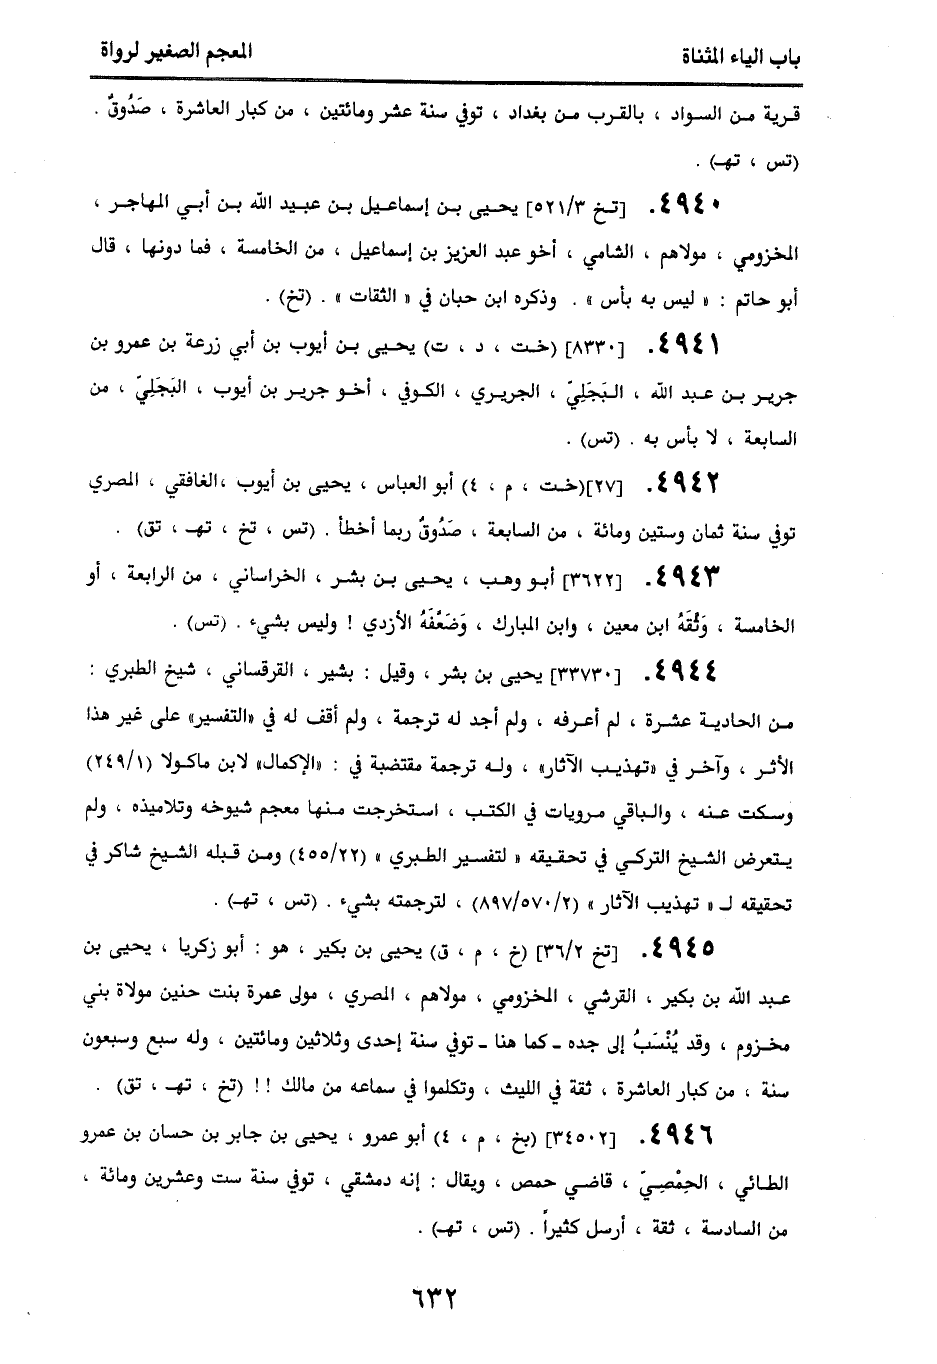 باب الياء المثناة
المعجم الصغير لرواة
قرية من السواد ، بالقرب من بغداد ، توفي سنة عشر ومائتين ، من كبار العاشرة ، صَدُوقٌ .
(تس ، تهـ) .
٤٩٤٠. [تخ ٥٢١/٣] يحيى بن إسماعيل بن عبيد الله بن أبي المهاجر ،
المخزومي ، مولاهم ، الشامي ، أخو عبد العزيز بن إسماعيل ، من الخامسة ، فما دونها ، قال
أبو حاتم : « ليس به بأس » . وذكره ابن حبان في « الثقات » . (تخ) .
٤٩٤١. [٨٣٣٠] (خت ، د ، ت) يحيى بن أيوب بن أبي زرعة بن عمرو بن
جرير بن عبد الله ، البَجَلِيّ ، الجريري ، الكوفي ، أخو جرير بن أيوب ، البَجَلِيّ ، من
السابعة ، لا بأس به . (تس) .
٤٩٤٢. [٢٧](خت ، م ، ٤) أبو العباس ، يحيى بن أيوب ،الغافقي ، المصري
توفي سنة ثمان وستين ومائة ، من السابعة ، صَدُوقٌ ربما أخطأ . (تس ، تخ ، تهـ ، تق) .
٤٩٤٣. [٣٦٢٢] أبو وهب ، يحيى بن بشر ، الخراساني ، من الرابعة ، أو
الخامسة ، وَثَّقَهُ ابن معين ، وابن المبارك ، وَضَعَّفَهُ الأزدي ! وليس بشيء . (تس) .
٤٩٤٤. [٣٣٧٣٠] يحيى بن بشر ، وقيل : بشير ، القرقساني ، شيخ الطبري :
من الحادية عشرة ، لم أعرفه ، ولم أجد له ترجمة ، ولم أقف له في «التفسير» على غير هذا
الأثر ، وآخر في «تهذيب الآثار» ، وله ترجمة مقتضبة في : «الإكمال» لابن ماكولا (٢٤٩/١)
وسكت عنه ، والباقي مرويات في الكتب ، استخرجت منها معجم شيوخه وتلاميذه ، ولم
يتعرض الشيخ التركي في تحقيقه « لتفسير الطبري » (٤٥٥/٢٢) ومن قبله الشيخ شاكر في
تحقيقه لـ « تهذيب الآثار » (٨٩٧/٥٧٠/٢) ، لترجمته بشيء . (تس ، تهـ) .
٤٩٤٥. [تخ ٣٦/٢] (خ ، م ، ق) يحيى بن بكير ، هو : أبو زكريا ، يحيى بن
عبد الله بن بكير ، القرشي ، المخزومي ، مولاهم ، المصري ، مولى عمرة بنت حنين مولاة بني
مخزوم ، وقد يُنْسَبُ إلى جده ـ كما هنا ـ توفي سنة إحدى وثلاثين ومائتين ، وله سبع وسبعون
سنة ، من كبار العاشرة ، ثقة في الليث ، وتكلموا في سماعه من مالك !! (تخ ، تهـ ، تق) .
٤٩٤٦. [٣٤٥٠٢] (بخ ، م ، ٤) أبو عمرو ، يحيى بن جابر بن حسان بن عمرو
الطائي ، الحِمْصِيّ ، قاضي حمص ، ويقال : إنه دمشقي ، توفي سنة ست وعشرين ومائة ،
من السادسة ، ثقة ، أرسل كثيراً . (تس ، تهـ) .
٦٣٢